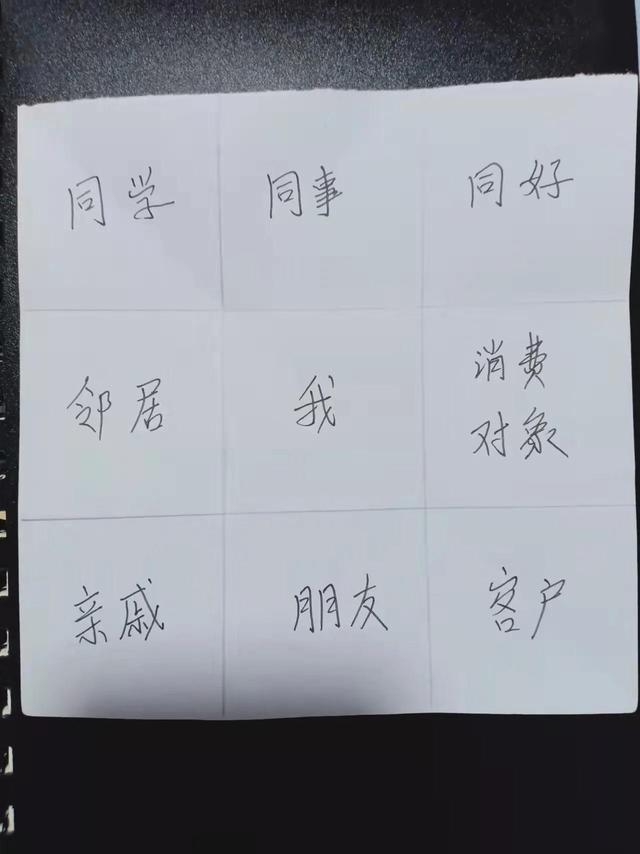 同学 同事 同好
邻居 我 消费
对象
亲戚 朋友 客户